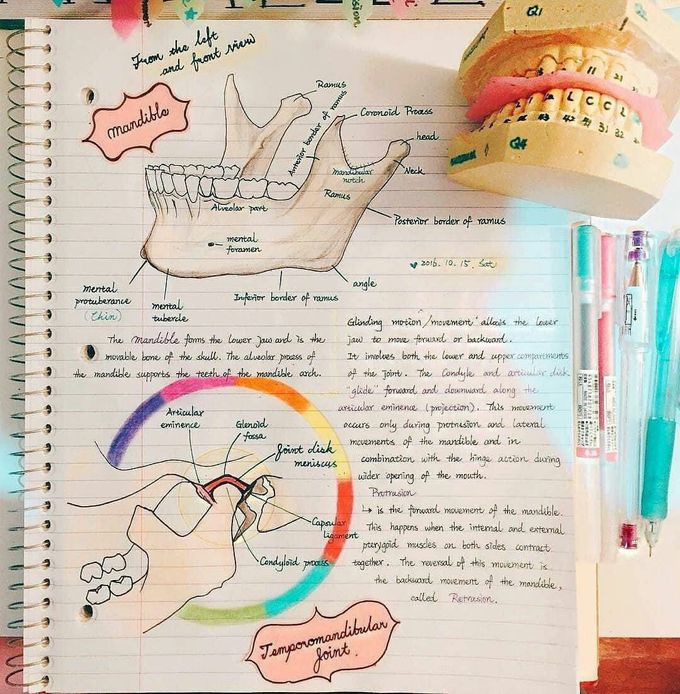 From the left
and front view
Mandible
Ramus
Coronoid Process
head
Anterior border of ramus
mandibular
notch
Neck
Ramus
Alveolar part
Posterior border of ramus
mental
foramen
2016. 10. 15. Sat
angle
mental
protuberance
(chin)
mental
tubercle
Inferior border of ramus
The Mandible forms the lower jaw and is the
movable bone of the skull. The alveolar process of
the mandible supports the teeth of the mandible arch.
Glinding motion/movement allows the lower
jaw to move forward or backward.
It involves both the lower and upper compartments
of the joint. The Condyle and articular disk
"glide" forward and downward along the
articular eminence (projection). This movement
occurs only during protrusion and lateral
movements of the mandible and in
combination with the hinge action during
wider opening of the mouth.
Protrusion
↳ is the forward movement of the mandible.
This happens when the internal and external
pterygoid muscles on both sides contract
together. The reversal of this movement is
the backward movement of the mandible,
called Retrusion.
Articular
eminence
Glenoid
fossa
Joint disk
meniscus
Capsular
ligament
Condyloid process
Temporomandibular
Joint.
Q1
Q4